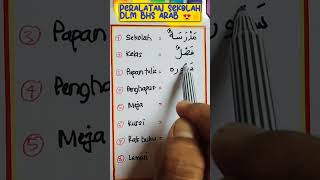 PERALATAN SEKOLAH
DLM BHS ARAB 😍
① Sekolah = مَدْرَسَةٌ
② Kelas = فَصْلٌ
③ Papan tulis =
④ Penghapus =
⑤ Meja =
⑥ Kursi =
⑦ Rak buku =
⑧ Lemari =
③ Papan
④ Penghap
⑤ Meja